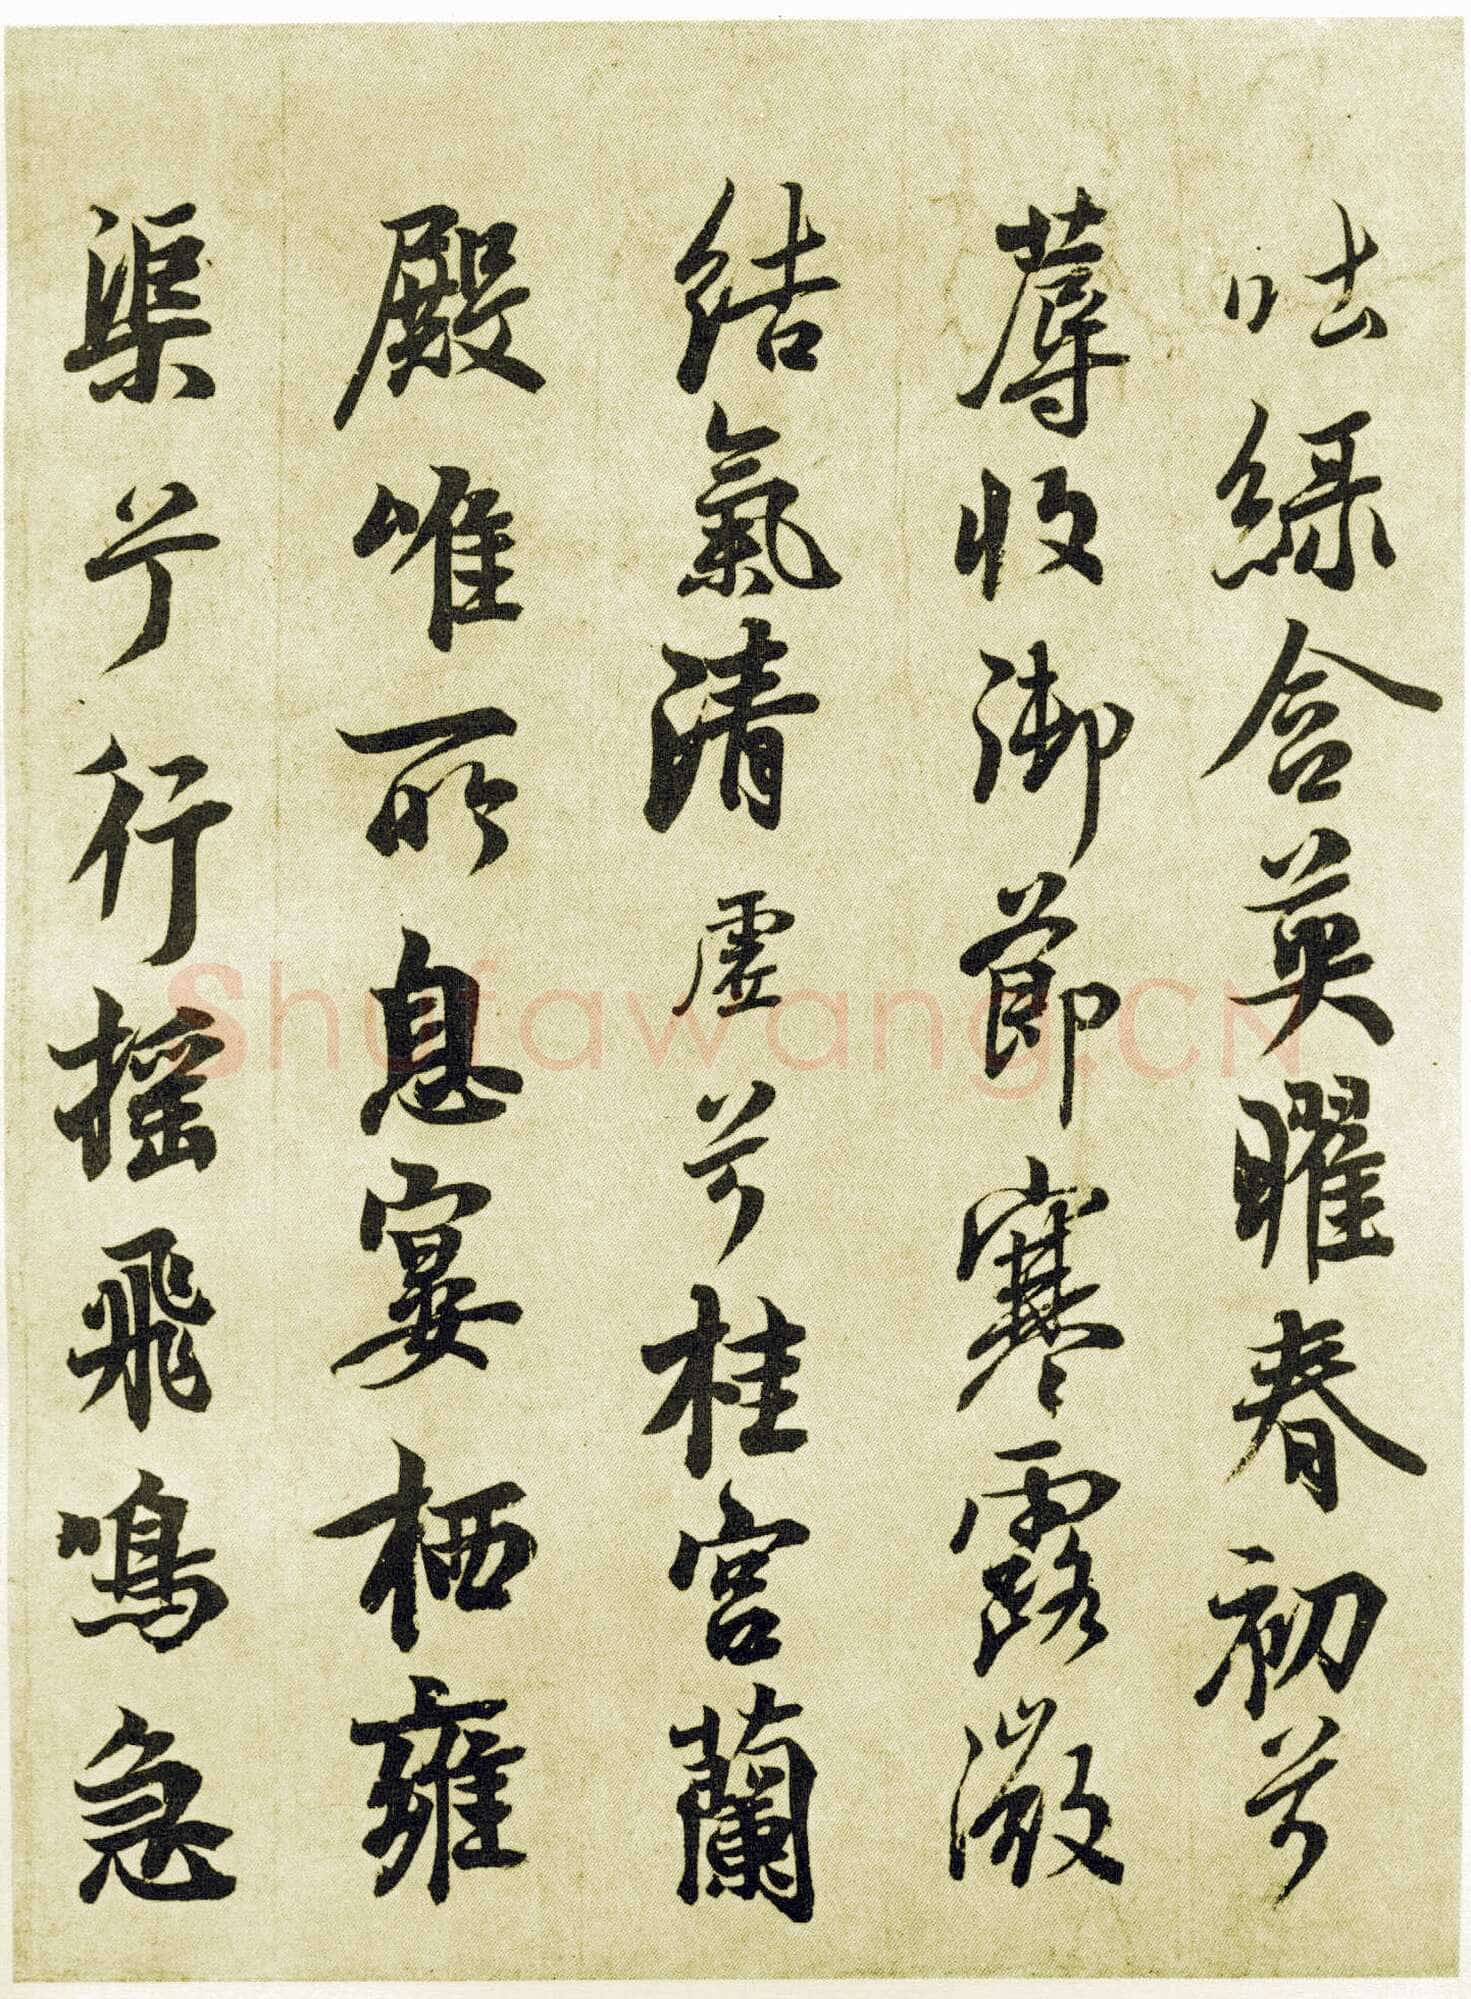 吐綠含英曜春初兮
蓐收御節寒露微
結氣清虛兮桂宮蘭
殿唯所息宴栖雍
渠兮行搖飛鳴急
Shufawang.CN